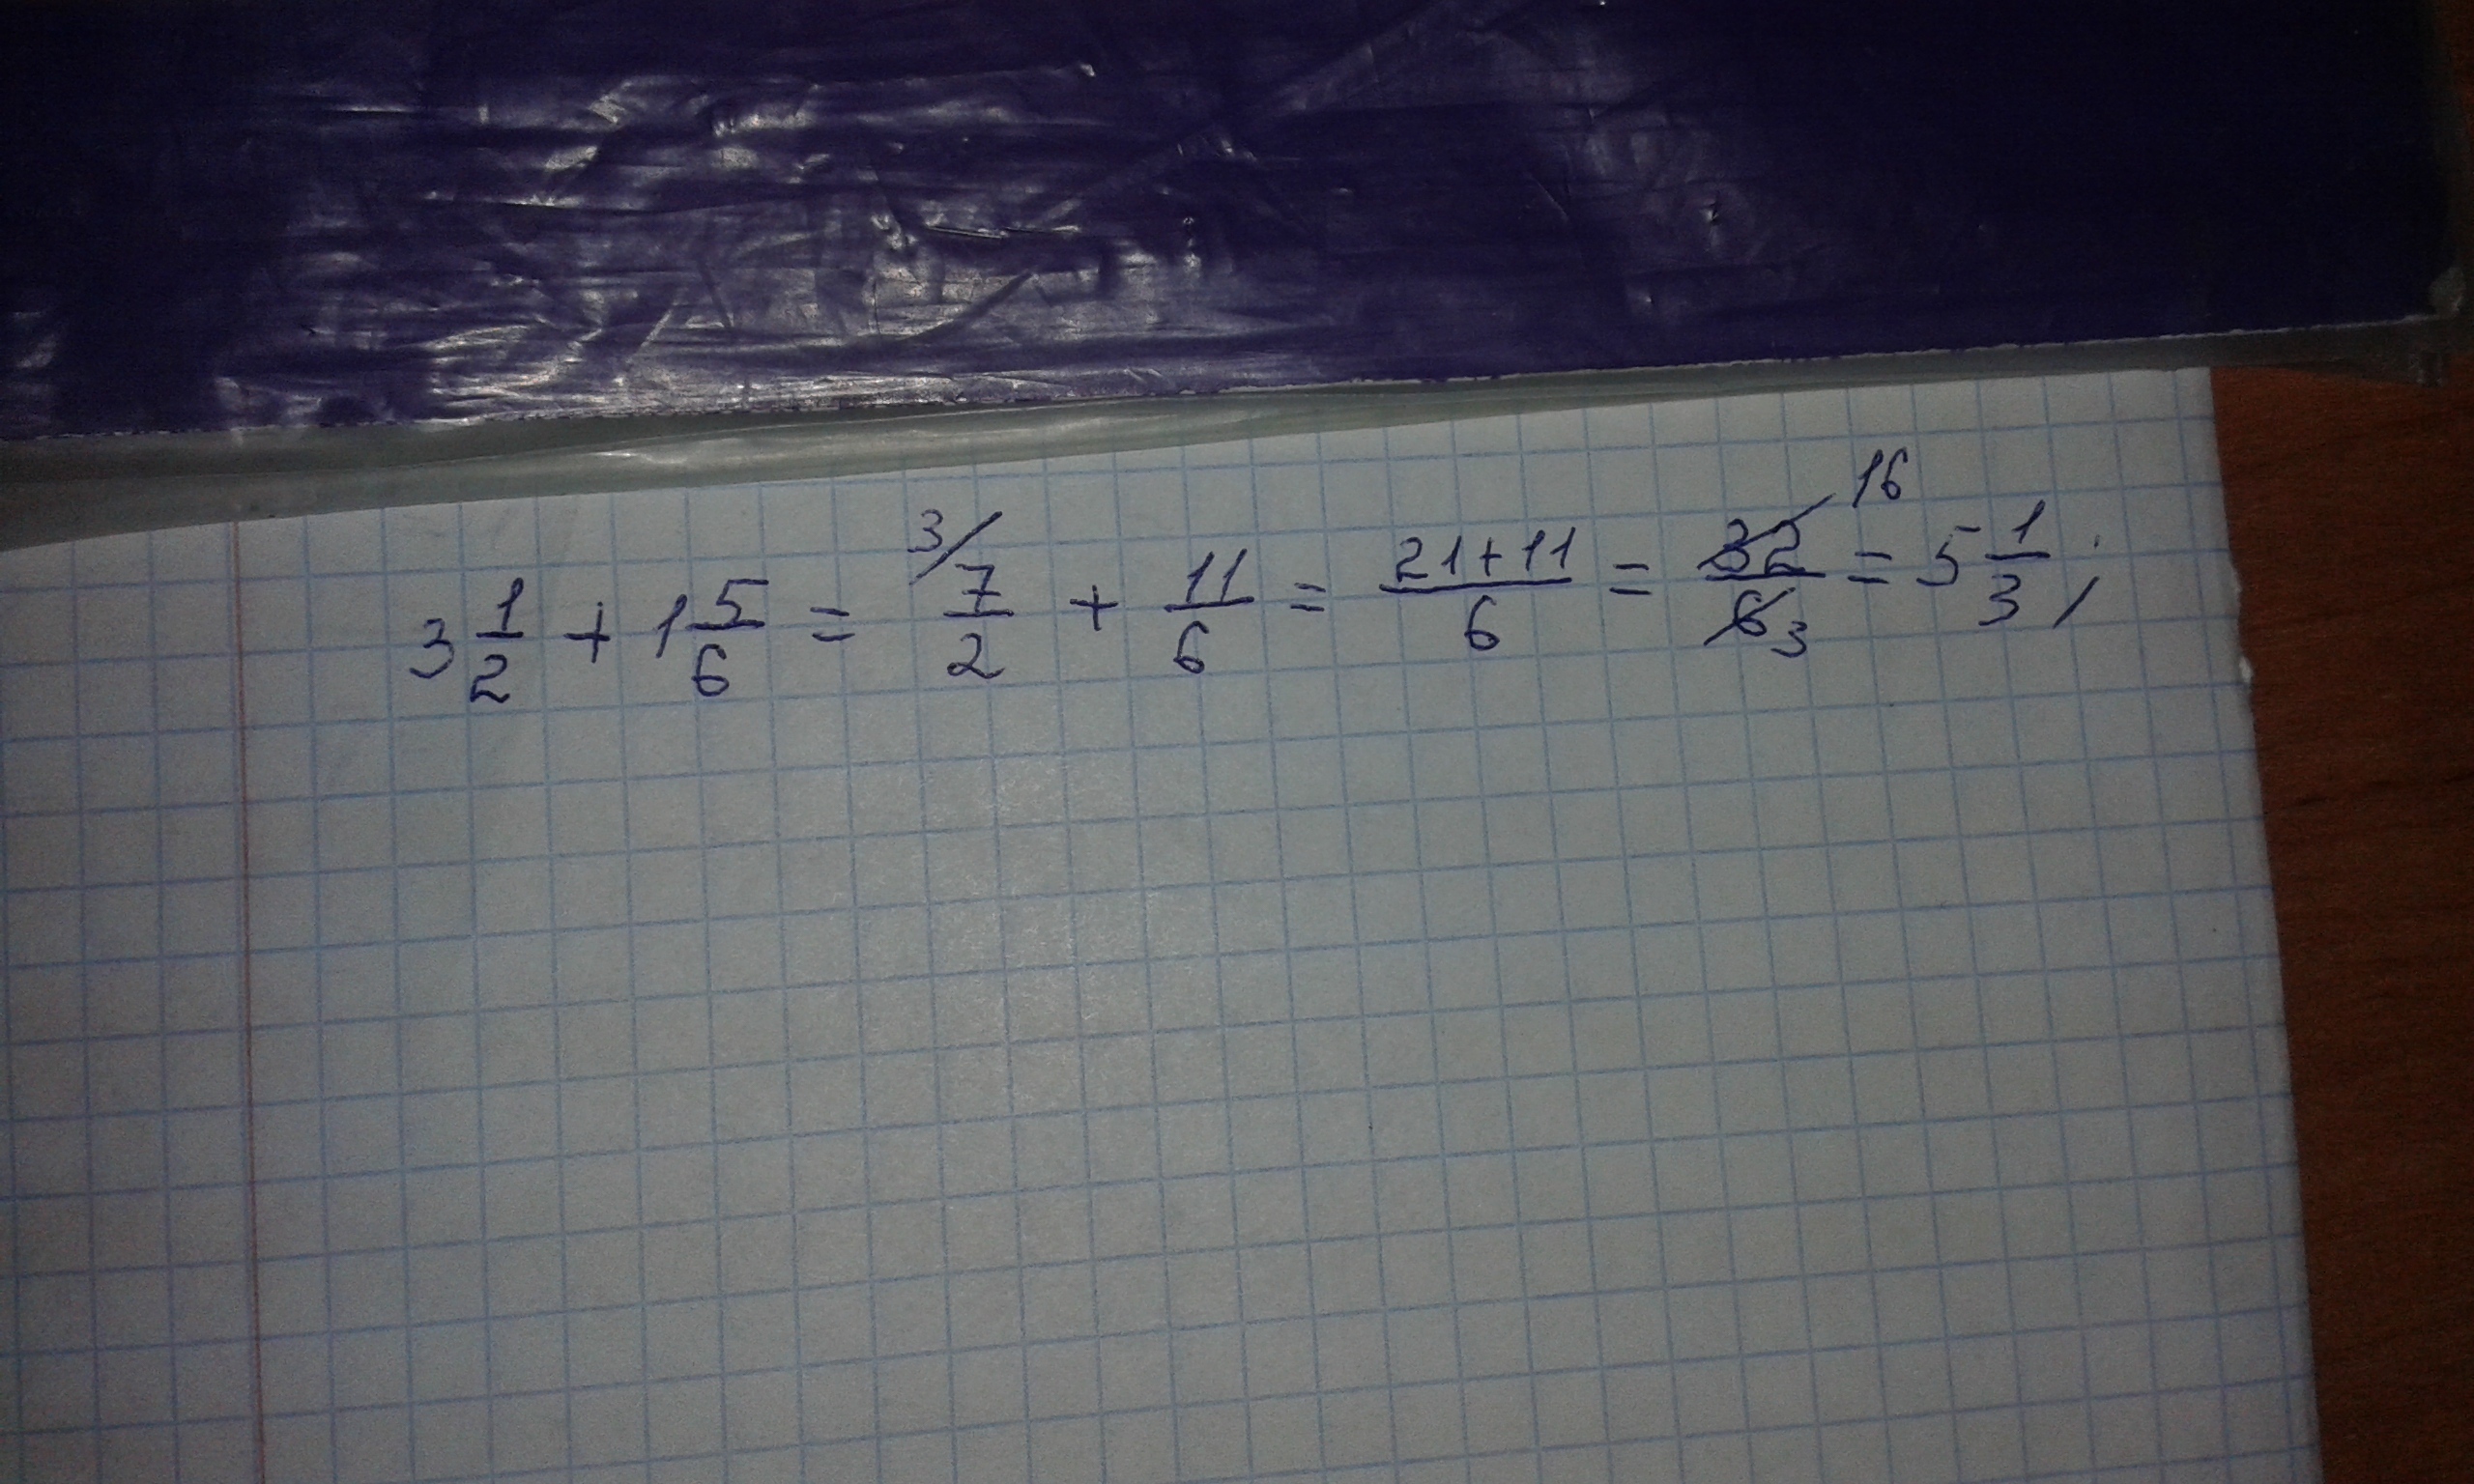 3 1/2 + 1 5/6 = 3/ 7/2 + 11/6 = 21+11/6 = 32 16/6 3 = 5 1/3;